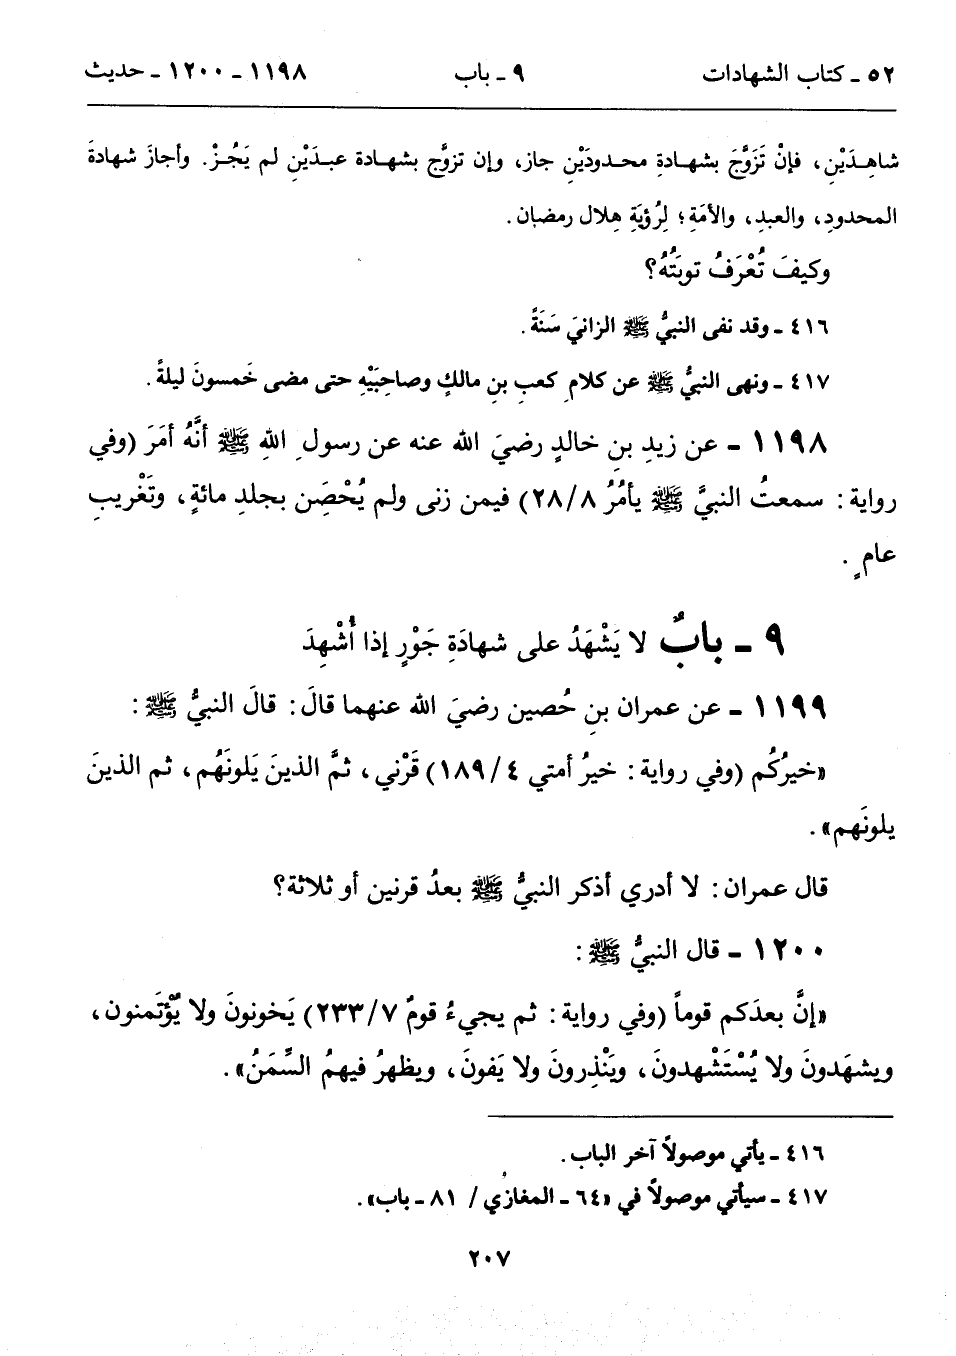 ٥٢ - كتاب الشهادات ٩ - باب ١١٩٨ - ١٢٠٠ - حديث
شاهِدَيْنِ، فإنْ تَزَوَّجَ بشهادةِ محدودَيْنِ جاز، وإن تزوَّج بشهادة عبدَيْنِ لم يَجُزْ. وأجازَ شهادةَ
المحدودِ، والعبدِ، والأمَةِ؛ لِرُؤيَةِ هِلال رمضان.
وكيفَ تُعْرَفُ توبَتُهُ؟
٤١٦ - وقد نفى النبيُّ ﷺ الزانيَ سَنَةً.
٤١٧ - ونهى النبيُّ ﷺ عن كلامِ كعبِ بنِ مالكٍ وصاحِبَيْهِ حتى مضى خَمسونَ ليلةً.
١١٩٨ - عن زيدِ بنِ خالدٍ رضيَ الله عنه عن رسولِ اللهِ ﷺ أنَّهُ أمَرَ (وفي
رواية: سمعتُ النبيَّ ﷺ يأمُرُ ٢٨/٨) فيمن زنى ولم يُحْصَِن بجلدِ مائةٍ، وتَغْريبِ
عامٍ.
٩ - بابٌ لا يَشْهَدُ على شهادَةِ جَوْرٍ إذا أُشْهِدَ
١١٩٩ - عن عمران بنِ حُصين رضيَ الله عنهما قالَ: قالَ النبيُّ ﷺ:
«خيرُكُم (وفي رواية: خيرُ أمتي ١٨٩/٤) قَرْني، ثمَّ الذينَ يَلونَهُم، ثم الذينَ
يلونَهم».
قال عمران: لا أدري أذكر النبيُّ ﷺ بعدُ قرنين أو ثلاثة؟
١٢٠٠ - قال النبيُّ ﷺ:
«إنَّ بعدَكم قوماً (وفي رواية: ثم يجيءُ قومٌ ٢٣٣/٧) يَخونونَ ولا يُؤْتَمنون،
ويشهَدونَ ولا يُسْتَشْهدونَ، ويَنْذِرونَ ولا يَفونَ، ويظهرُ فيهمُ السِّمَنُ».
٤١٦ - يأتي موصولاً آخر الباب.
٤١٧ - سيأتي موصولاً في «٦٤ - المغازي / ٨١ - باب».
٢٠٧